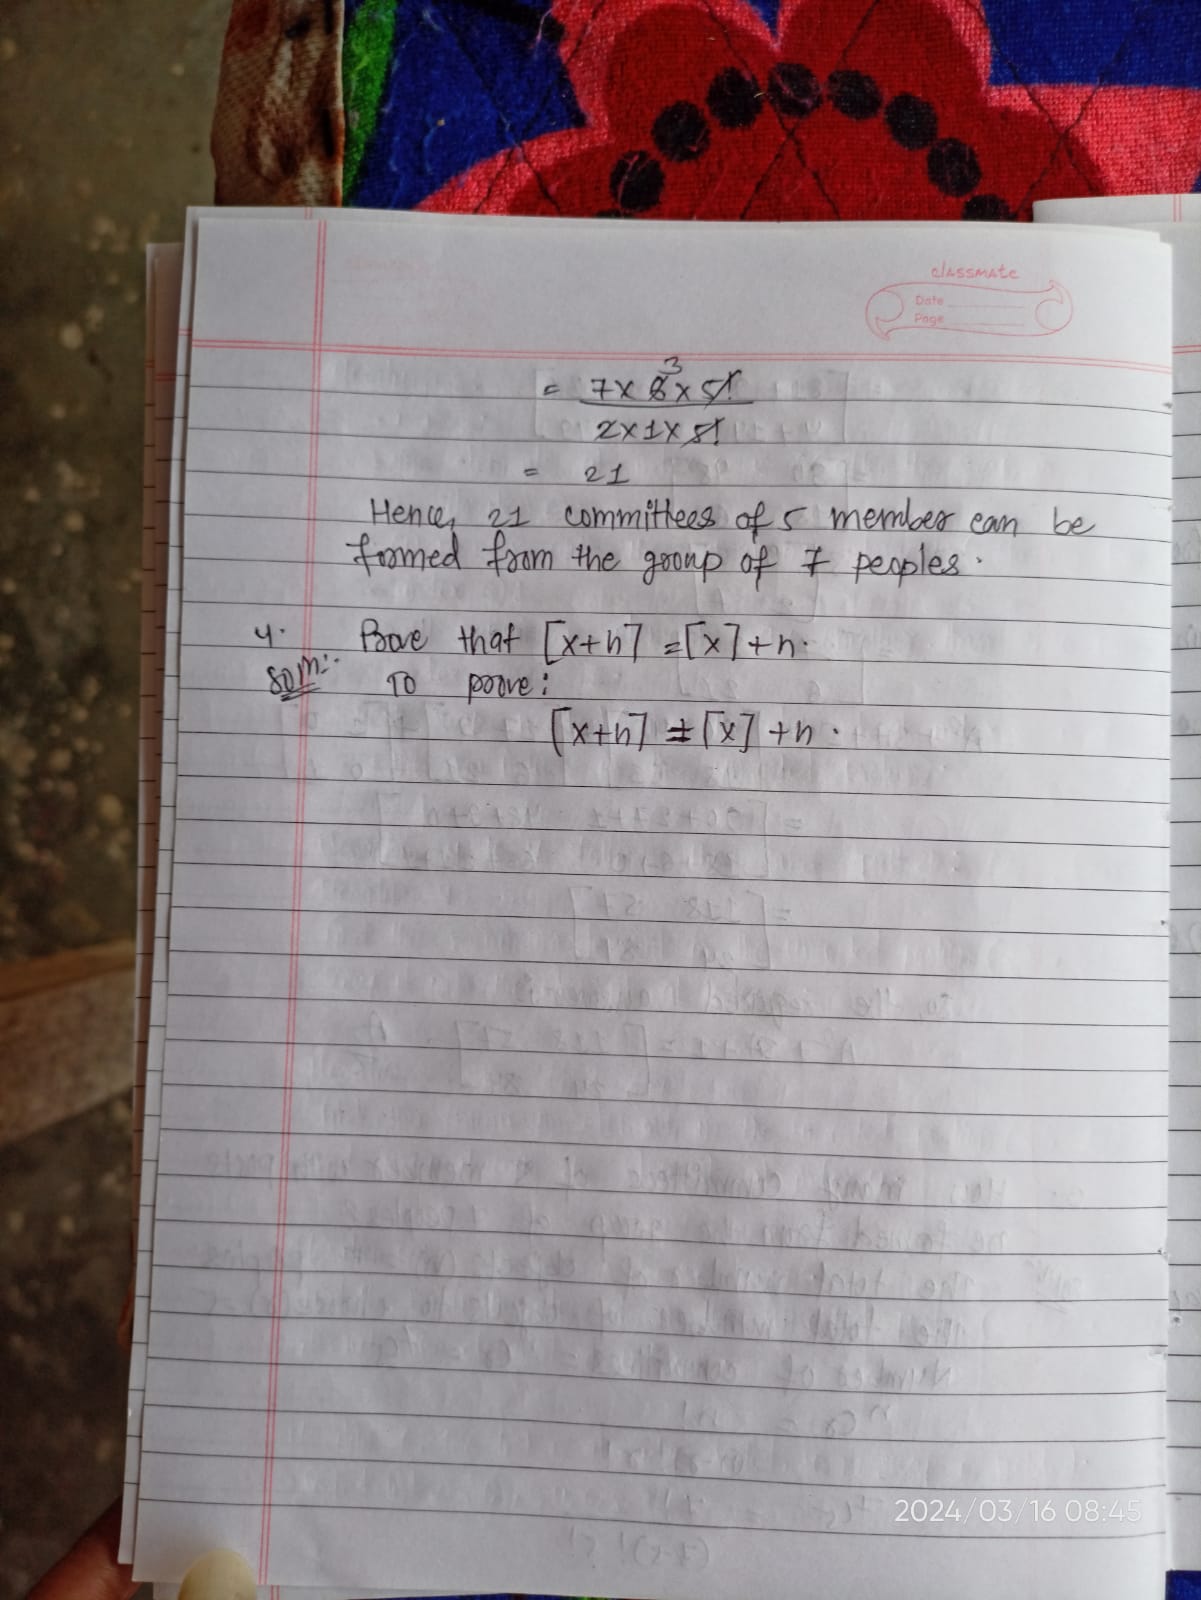 classmate
Date
Page
= 7 x 6 3 x 5!
2 x 1 x 5!
= 21
Hence, 21 committees of 5 member can be
formed from the group of 7 peoples.
4. Prove that ⌈x+n⌉ = ⌈x⌉ + n.
Soln:- To prove:
⌈x+n⌉ = ⌈x⌉ + n.
2024/03/16 08:45